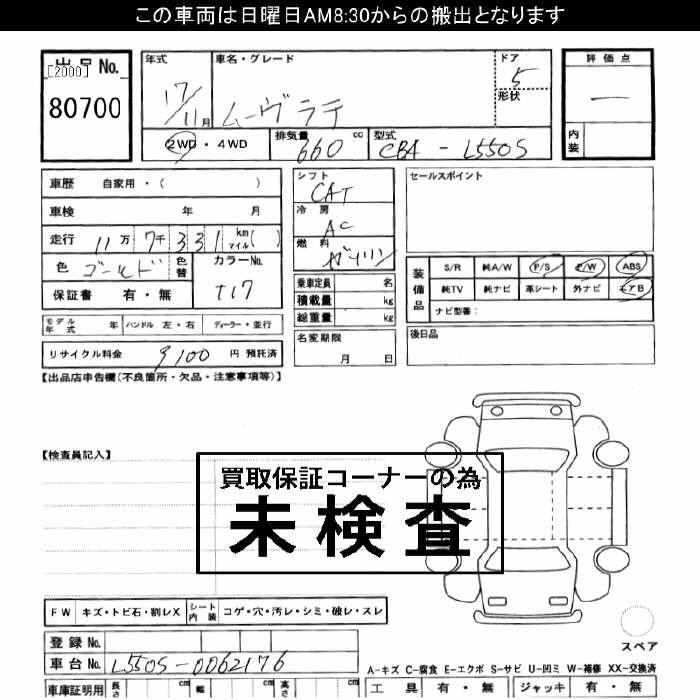 この車両は日曜日AM8:30からの搬出となります
出品No.
[2000]
80700
年式
17/11月
車名・グレード
ムーヴラテ
ドア
5
形状
2WD・4WD
排気量
660 cc
型式
CBA - L550S
評価点
—
内装
車歴 自家用・( )
車検 年 月
走行 11万7千331 km マイル( )
色 ゴールド
色替
カラーNo.
T17
保証書 有・無
モデル年式 年 ハンドル 左・右 ディーラー・並行
リサイクル料金 9100 円 預託済
シフト
CAT
冷房
AC
燃料
ガソリン
乗車定員 名
積載量 kg
総重量 kg
名変期限
月 日
セールスポイント
装備品
S/R 純A/W P/S P/W ABS
純TV 純ナビ 革シート 外ナビ エアB
ナビ型番:
後日品
【出品店申告欄(不良箇所・欠品・注意事項等)】
【検査員記入】
買取保証コーナーの為
未検査
FW キズ・トビ石・割レX シート内装 コゲ・穴・汚レ・シミ・破レ・スレ
登録No.
車台No. L550S-0062176
車庫証明用 長さ cm 幅 cm 高さ cm
スペア
A-キズ C-腐食 E-エクボ S-サビ U-凹ミ W-補修 XX-交換済
工具 有・無 ジャッキ 有・無